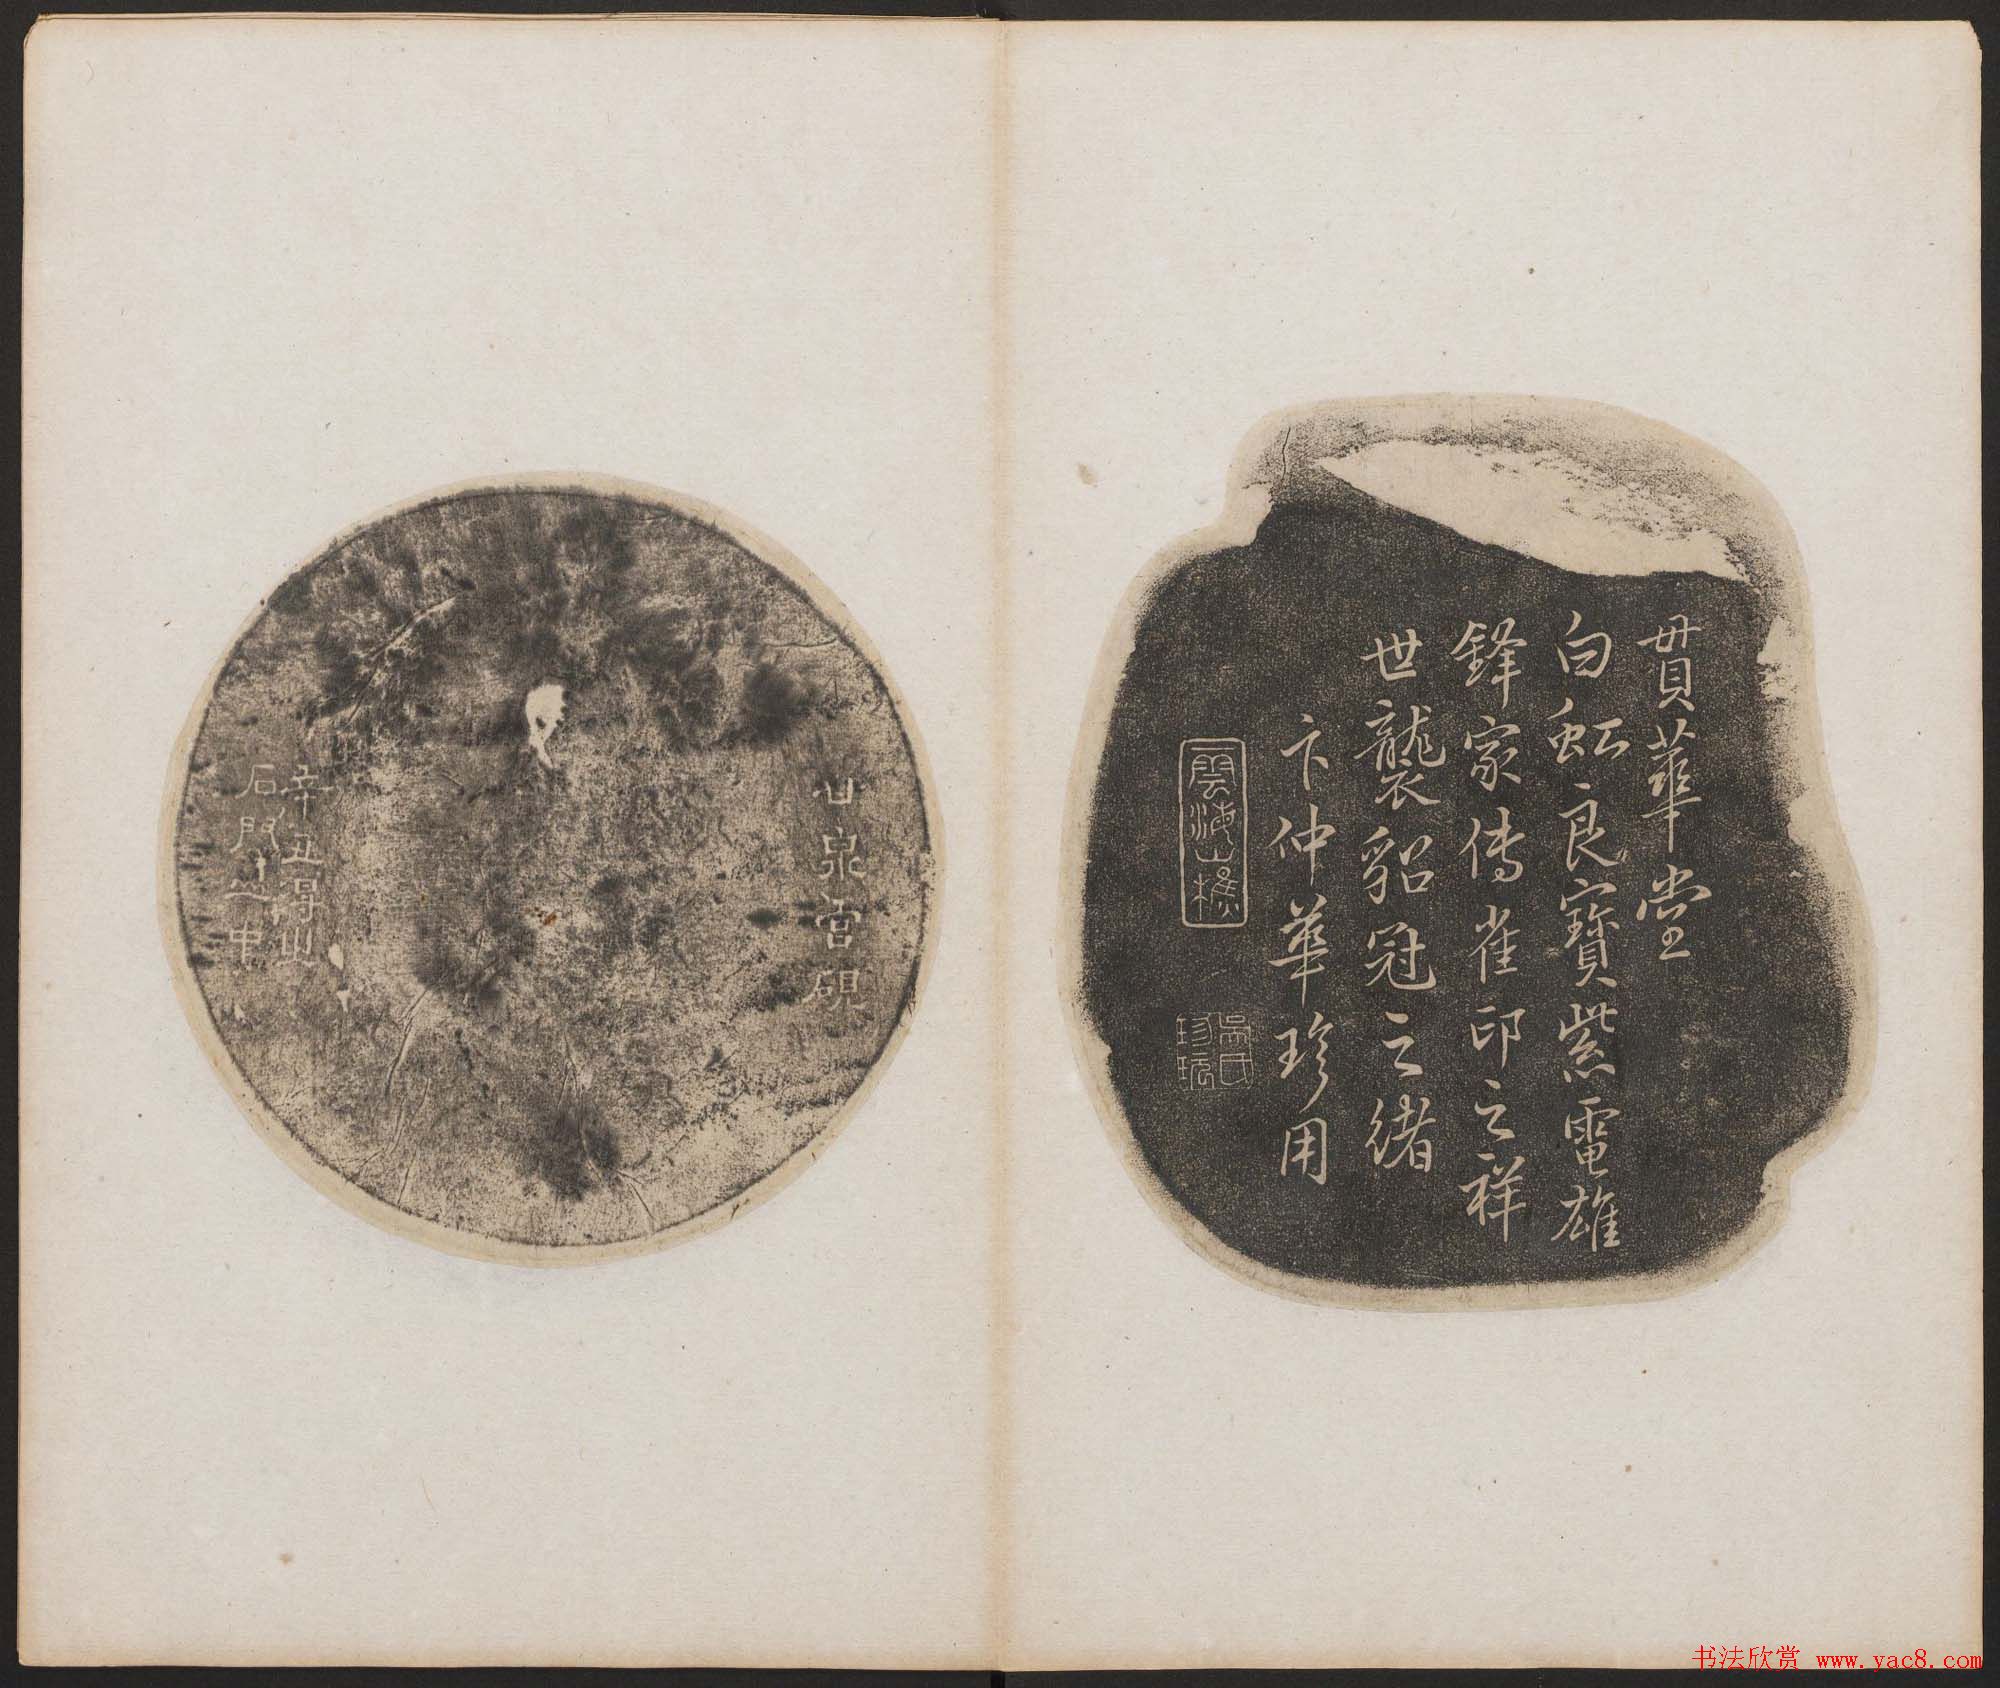 貫華堂
白虹良寶紫電雄
鋒家傳雀印之祥
世襲貂冠之緒
卞仲華珍用
雲海山樵
吳氏
珍玩
甘泉宮硯
辛丑得山
石門之中
书法欣赏 www.yac8.com